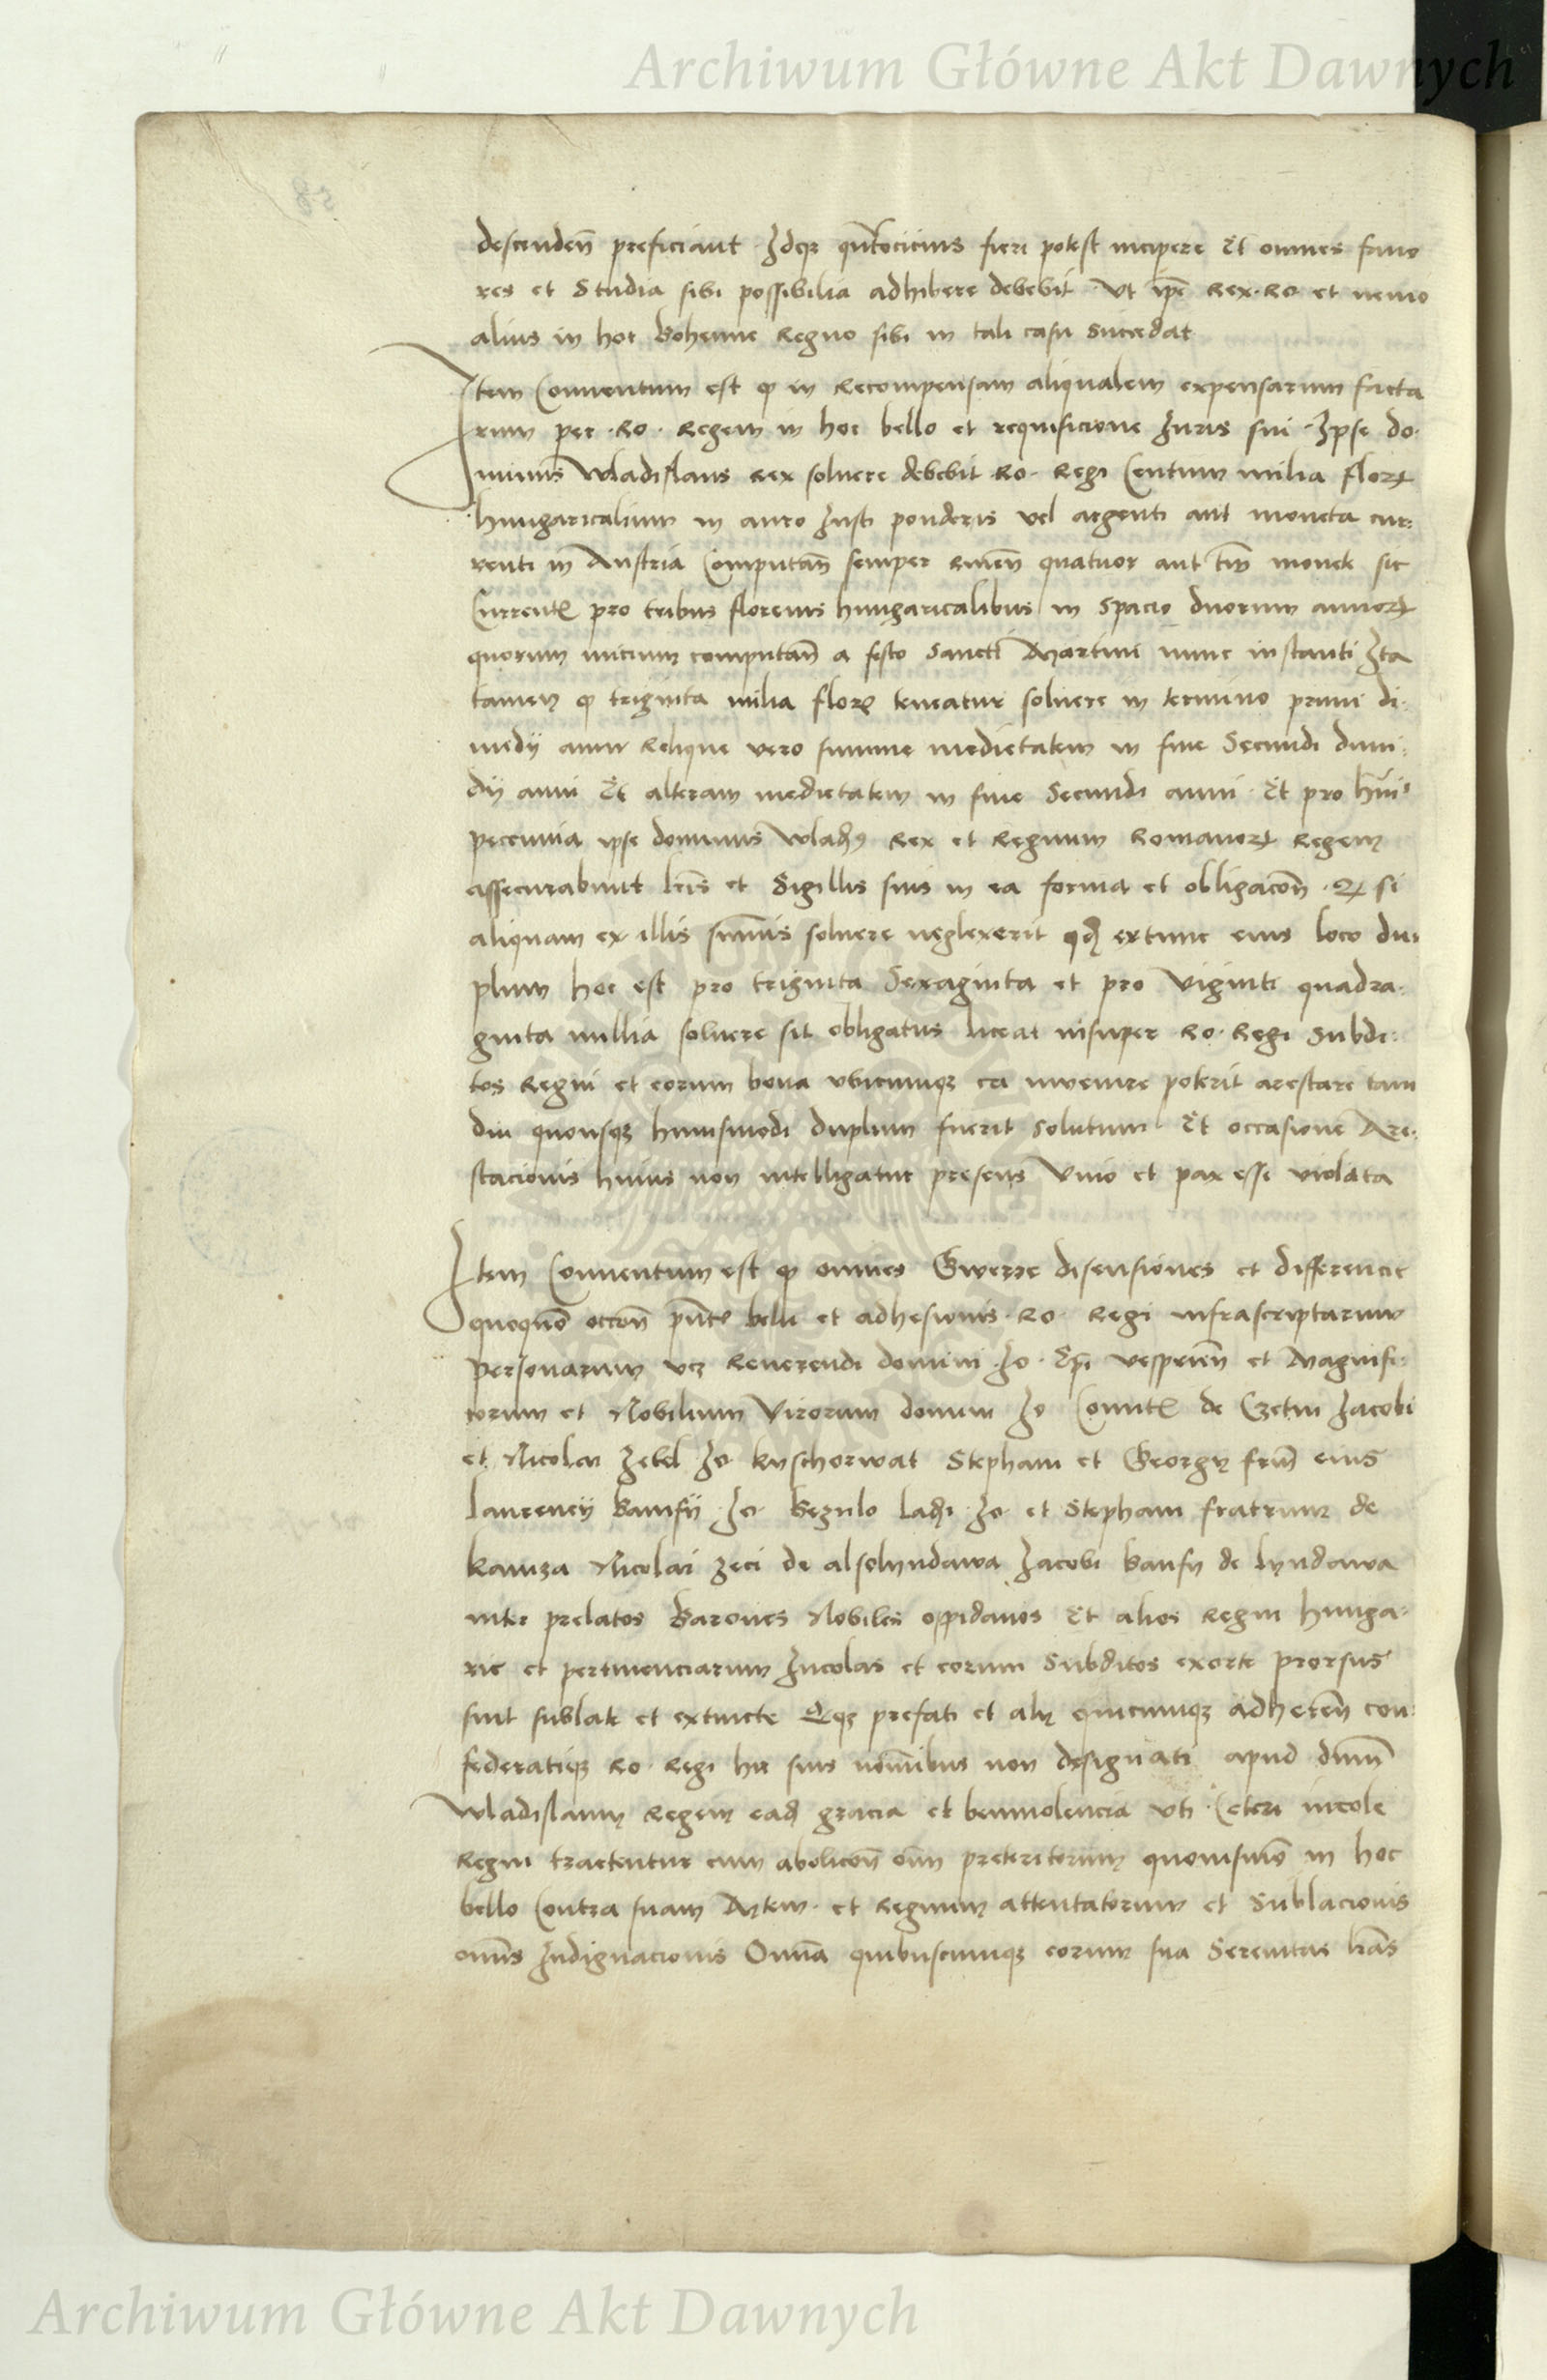 Archiwum Główne Akt Dawnych
58
descenden̄ preficiant · Idqz qn̄tocicius fieri potest incipere Et omnes fauo
res et Studia sibi possibilia adhibere debebit · Vt ip̄e Rex · Ro · et nemo
alius in hoc Bohemie Regno sibi in tali casu succedat
Item Conuentum est ꝙ in Recompensam aliqualem expensarum facta
rum per · Ro · Regem in hoc bello et requisicione Iuris sui · Ipse do·
minus Wladislaus Rex soluere debebit · Ro · Regi Centum milia florꝝ
hungaricalium in auro Iusti ponderis vel argenti aut moneta cur·
renti in Austria Computan̄ semper Renen̄ quatuor aut tm̄ monete sic
Current̄ pro tribus florenis hungaricalibus in Spacio duorum annorꝝ
quorum inicium computan̄ a festo Sancti Martini nunc instanti Ita
tamen ꝙ triginta milia floꝝ teneatur soluere in termino primi di·
medij anni Relique vero summe medietatem in fine Secundi dimi·
dij anni Et alteram medietatem in fine Secundi anni · Et pro hui9
peccunia ipse dominus Wlads Rex et Regnum Romanorꝝ Regem
assecurabunt lr̄is et Sigillis suis in ea forma et obligacōn · ꝙ si
aliquam ex illis sum̄is soluere neglexerit qd extunc eius loco du·
plum hoc est pro triginta Sexaginta et pro Viginti quadra·
ginta millia soluere sit obligatus liceat insuper Ro · Regi Subdi·
tos Regni et eorum bona vbicumqz ea inuenire poterit arestare tam
diu quousqz huiusmodi duplum fuerit solutum · Et occasione Are·
stacionis huius non intelligatur presens Vnio et pax esse violata
Item Conuentum est ꝙ omnes Gwerre disensiones et differencie
quoquō occōn pn̄t̄ belli et adhesionis · Ro · Regi infrascriptarum
personarum vcz Reuerendi domini · Io · Ep̄i vesprien̄ et Magnifi·
corum et Nobilium Virorum domini Io Comit̄ de Czetin Iacobi
et Nicolai Zekel Io kyschorwat Stephani et Georgy frm̄ eius
laurency Bamfy · Io · Kezulo ladi · Io · et Stephani fratrum de
kamza Nicolai Zeci de alsolyndawa Iacobi Banfy de lyndawa
inter prelatos Barones Nobiles oppidanos Et alios Regni hunga·
rie et pertinenciarum Incolas et eorum Subditos exorte prorsus
sint sublate et extincte Eqz prefati et alij quicumqz adheren̄ con·
federatiqz Ro · Regi hic suis nom̄ibus non designati apud dnm̄
Wladislaum Regem ead gracia et beniuolencia vti Ceteri incole
Regni tractentur cum abolicōn om̄ preteritorum quouismō in hoc
bello Contra suam Mtem · et Regnum attentatorum et Sublacionis
om̄is Indignacionis Omn̄a quibuscumqz eorum sua Serenitas lr̄as
Archiwum Główne Akt Dawnych